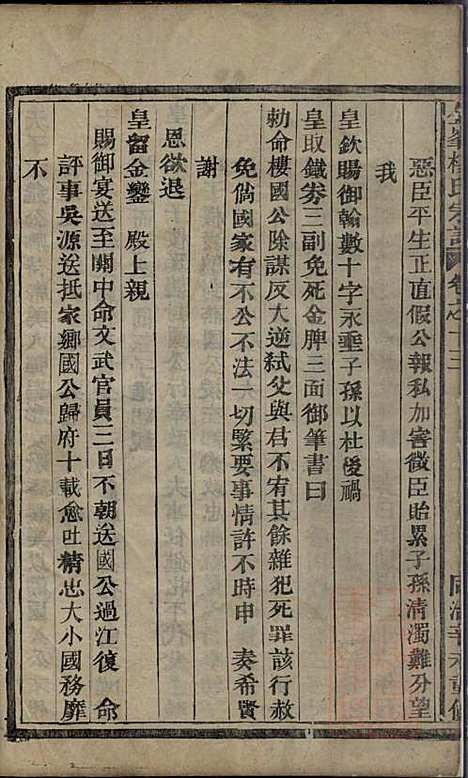 惡臣平生正直假公報私加害微臣貽累子孫清濁難分望
我
皇欽賜御翰數十字永垂子孫以杜後禍
皇取鐵券三副免死金牌三面御筆書曰
勑命樓國公除謀反大逆弒父與君不宥其餘雜犯死罪該行赦
免倘國家有不公不法一切緊要事情許不時申 奏希賢
謝
恩欲退
皇留金鑾 殿上親
賜御宴送至關中命文武官員三日不朝送國公過江復 命
評事吳源送抵家鄉國公歸府十載愈吐精忠大小國務靡
不
樓氏宗譜 卷之十三
同治辛未重修